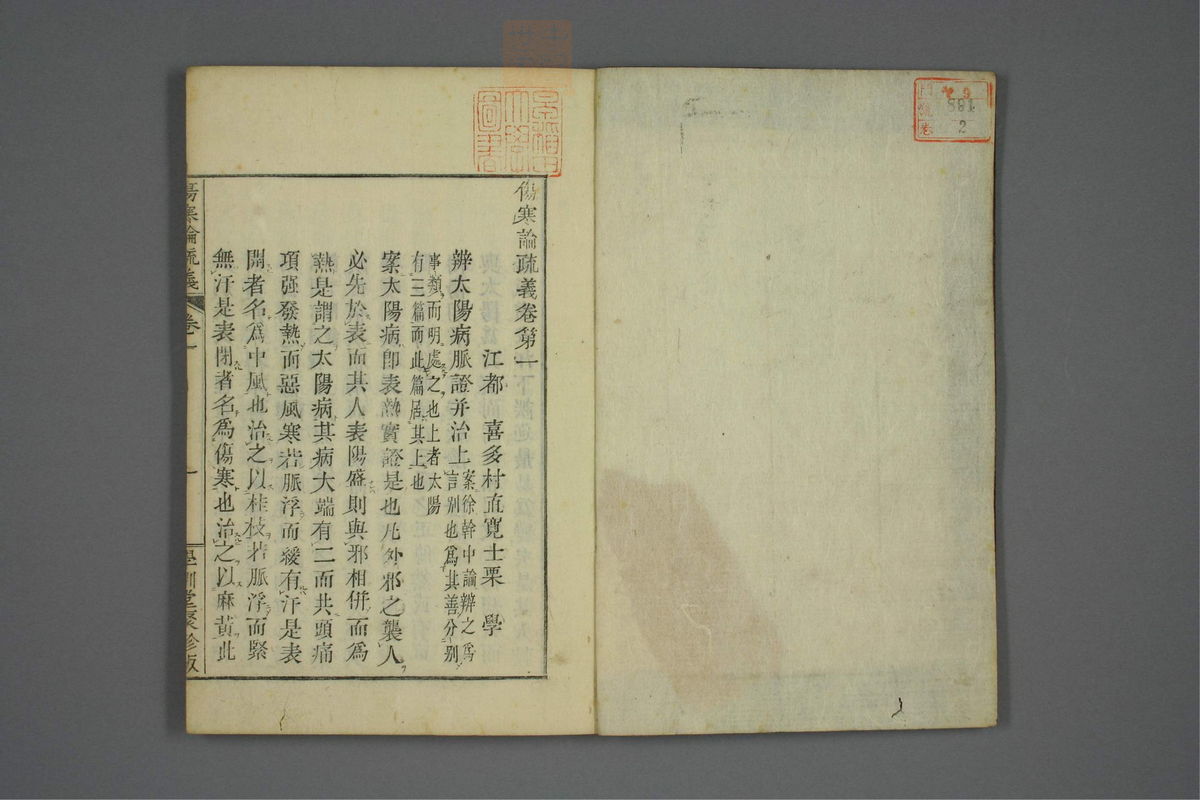 傷寒論疏義卷第一
江都 喜多村直寬士栗 學
辨太陽病脈證并治上
案徐幹中論辨之爲
言別也爲其善分別
事類而明處之也上者太陽
有三篇而此篇居其上也
案太陽病卽表熱實證是也凡外邪之襲人
必先於表而其人表陽盛則與邪相併而爲
熱是謂之太陽病其病大端有二而共頭痛
項强發熱而惡風寒若脈浮而緩有汗是表
開者名爲中風也治之以桂枝若脈浮而緊
無汗是表閉者名爲傷寒也治之以麻黃此
傷寒論疏義
卷一
一
學訓堂聚珍版
圖書
881
2